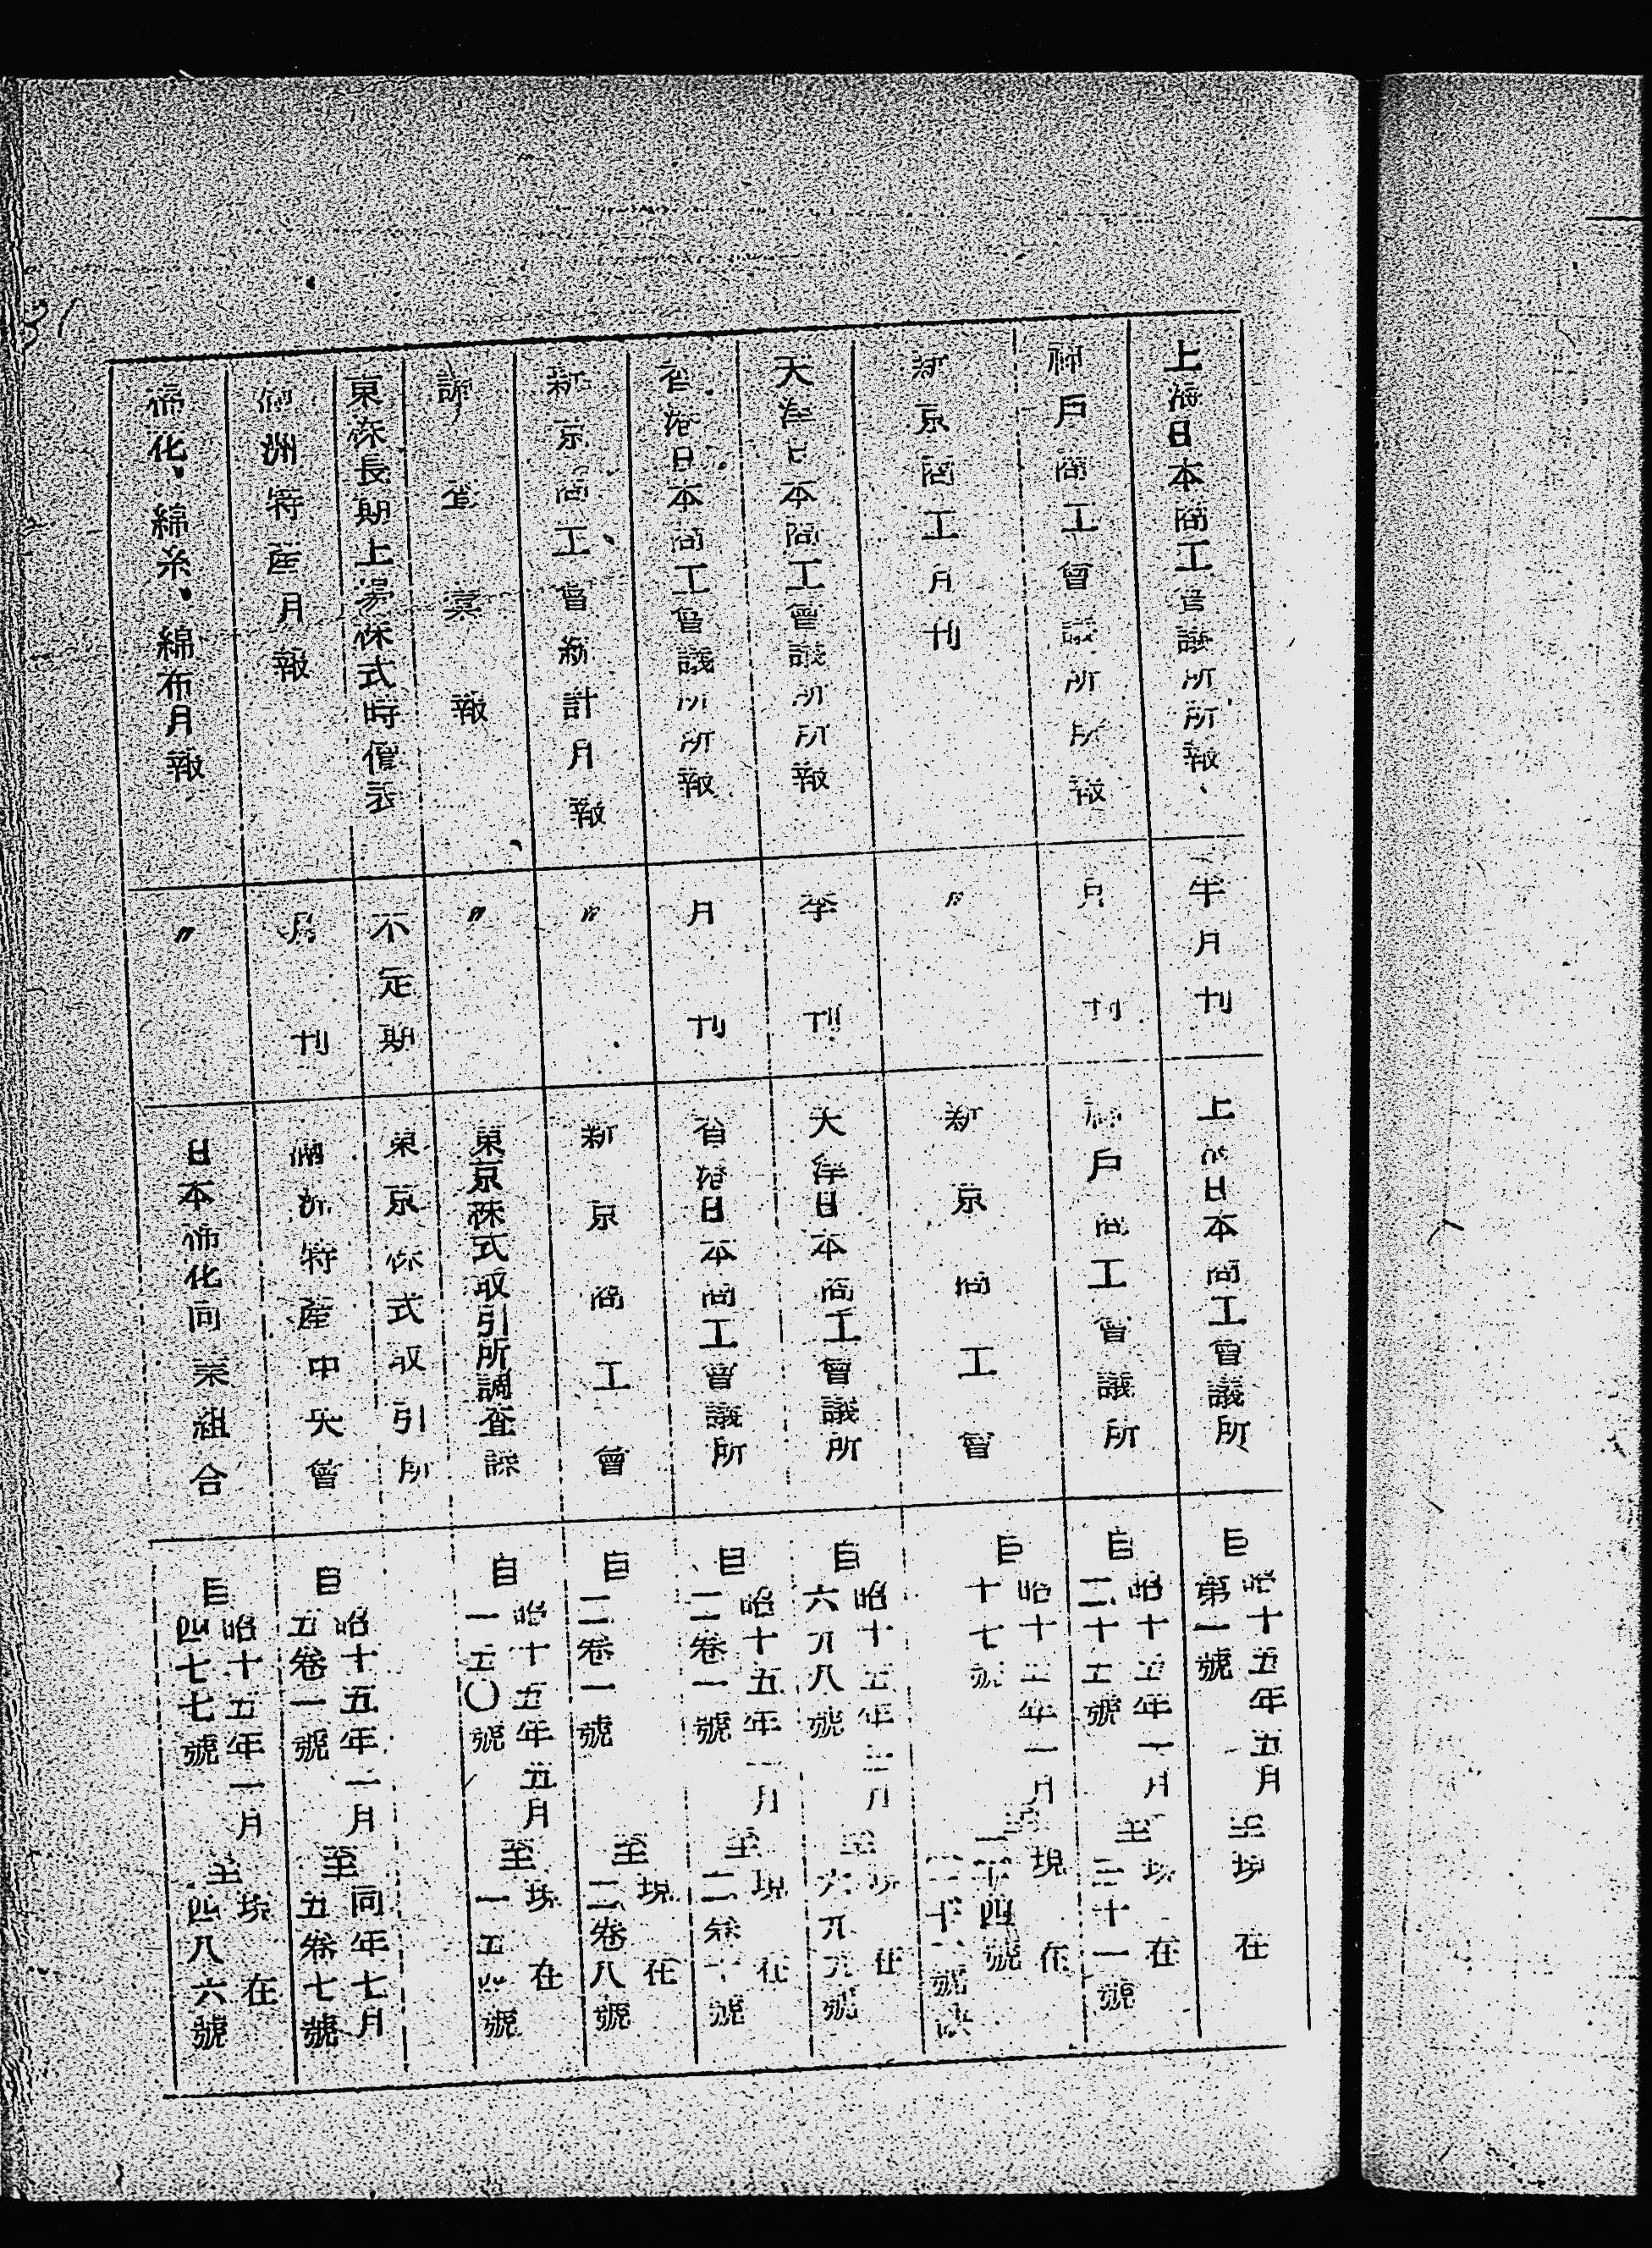 上海日本商工會議所所報 半月刊 上海日本商工會議所 自昭十五年五月第一號 至現在
神戶商工會議所所報 月刊 神戶商工會議所 自昭十五年一月二十五號 至現在三十一號
新京商工月刊 〃 新京商工會 自昭十五年一月十七號 至現在二十四號
天津日本商工會議所所報 季刊 天津日本商工會議所 自昭十五年 月六九八號 至現在六九九號
省港日本商工會議所所報 月刊 省港日本商工會議所 自昭十五年一月二卷一號 至現在二卷 號
新京商工會統計月報 〃 新京商工會 自二卷一號 至現在二卷八號
調査彙報 〃 東京株式取引所調査課 自昭十五年五月一五〇號 至現在一五 號
東株長期上場株式時價表 不定期 東京株式取引所
滿洲特産月報 月刊 滿洲特産中央會 自昭十五年一月五卷一號 至同年七月五卷七號
棉花、綿糸、綿布月報 〃 日本棉花同業組合 自昭十五年一月四七七號 至現在四八六號